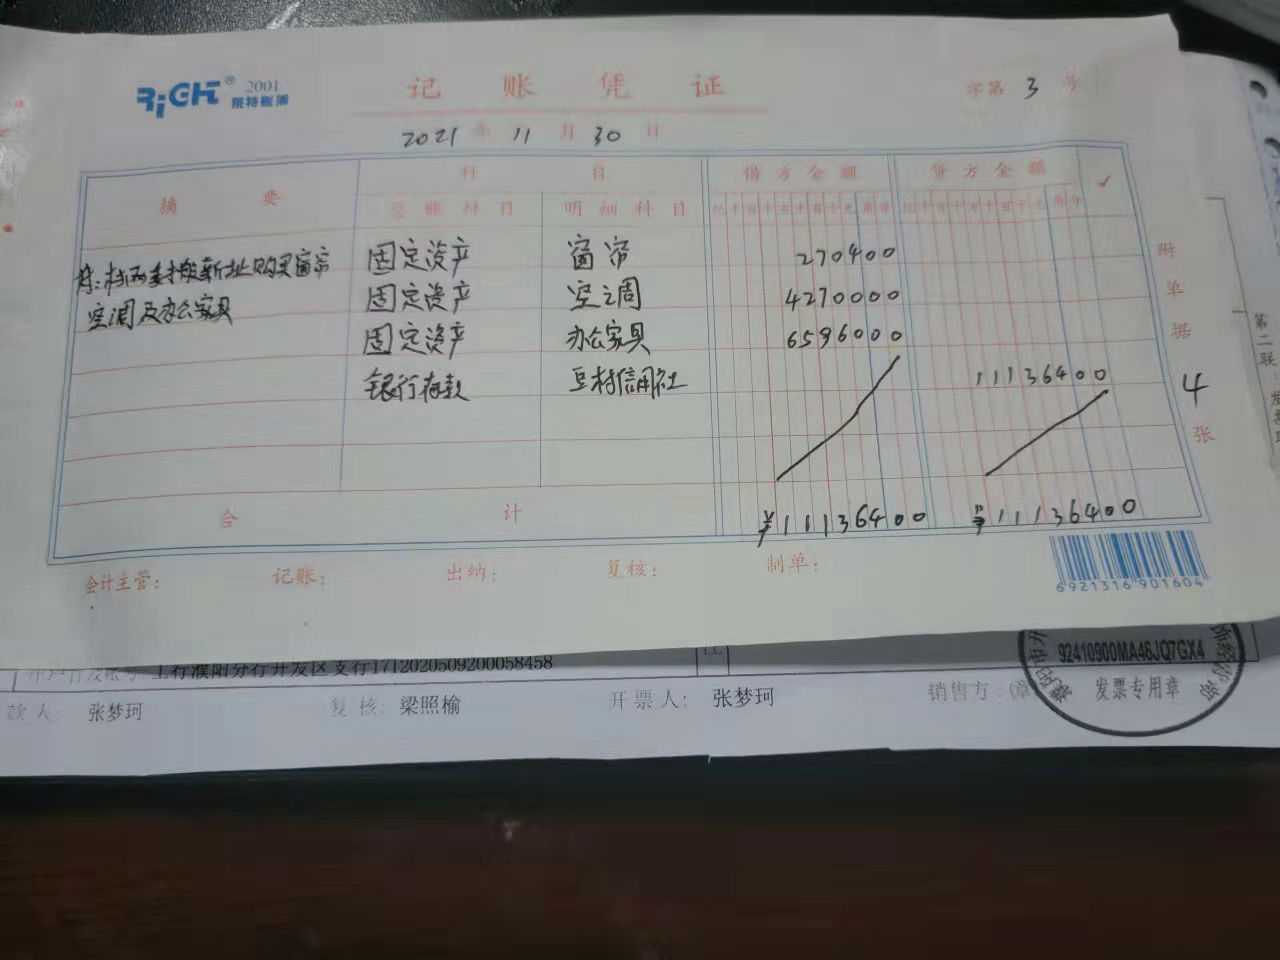 RiGHT® 2001
莱特账簿
记账凭证
字第 3 号
2021 年 11 月 30 日
摘要
科目
借方金额
贷方金额
✓
总账科目
明细科目
亿千百十万千百十元角分
亿千百十万千百十元角分
购买窗帘
固定资产 窗帘 270400
空调及办公家具
固定资产 空调 4270000
固定资产 办公家具 6596000
银行存款 豆村信用社 11136400
合计 ¥11136400 ¥11136400
附单据 4 张
会计主管: 记账: 出纳: 复核: 制单:
6921316901604
第二联:发票联
工行濮阳分行开发区支行1712020509200058458
款人: 张梦珂 复核: 梁照榆 开票人: 张梦珂 销售方:(章
92410900MA46JQ7GX4
发票专用章